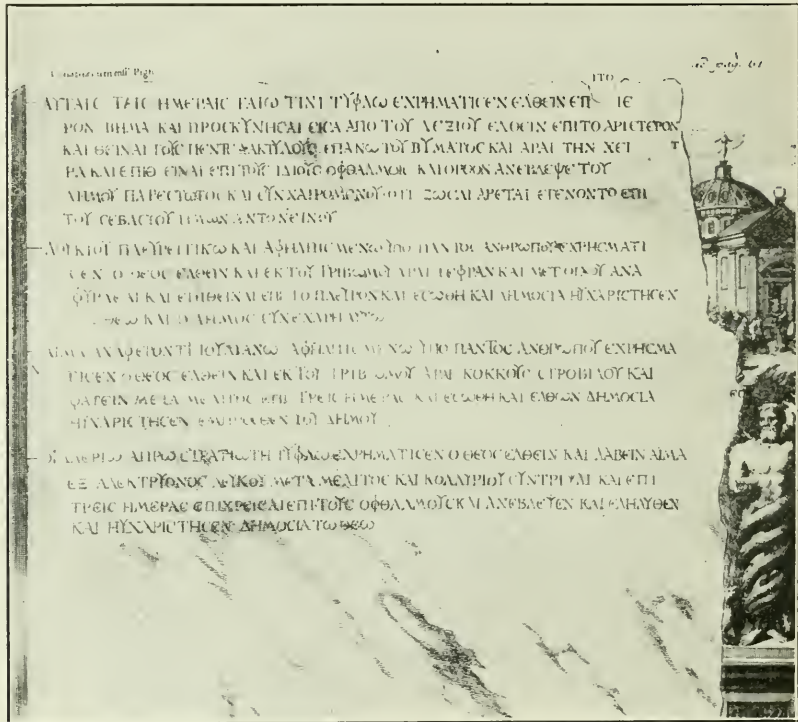 ad pag. 61
ΙΤΟ
ΑΥΤΑΙϹ ΤΑΙϹ ΗΜΕΡΑΙϹ ΓΑΙΩ ΤΙΝΙ ΤΥΦΛΩ ΕΧΡΗΜΑΤΙϹΕΝ ΕΛΘΕΙΝ ΕΠ ΙΕ
ΡΟΝ ΒΗΜΑ ΚΑΙ ΠΡΟϹΚΥΝΗϹΑΙ ΕΙϹΑ ΑΠΟ ΤΟΥ ΔΕΞΙΟΥ ΕΛΘΕΙΝ ΕΠΙ ΤΟ ΑΡΙϹΤΕΡΟΝ
ΚΑΙ ΘΕΙΝΑΙ ΤΟΥϹ ΠΕΝΤΕ ΔΑΚΤΥΛΟΥϹ ΕΠΑΝΩ ΤΟΥ ΒΥΜΑΤΟϹ ΚΑΙ ΑΡΑΙ ΤΗΝ ΧΕΙ
ΡΑ ΚΑΙ ΕΠΙΘΕΙΝΑΙ ΕΠΙ ΤΟΥϹ ΙΔΙΟΥϹ ΟΦΘΑΛΜΟΥϹ ΚΑΙ ΟΡΘΟΝ ΑΝΕΒΛΕΨΕ ΤΟΥ
ΔΗΜΟΥ ΠΑΡΕϹΤΩΤΟϹ ΚΑΙ ϹΥΝΧΑΙΡΟΜΕΝΟΥ ΟΤΙ ΖΩϹΑΙ ΑΡΕΤΑΙ ΕΓΕΝΟΝΤΟ ΕΠΙ
ΤΟΥ ϹΕΒΑϹΤΟΥ ΗΜΩΝ ΑΝΤΩΝΕΙΝΟΥ
ΛΟΥΚΙΩ ΠΛΕΥΡΕΙΤΙΚΩ ΚΑΙ ΑΦΗΛΠΙϹΜΕΝΩ ΥΠΟ ΠΑΝΤΟϹ ΑΝΘΡΩΠΟΥ ΕΧΡΗϹΜΑΤΙ
ϹΕΝ Ο ΘΕΟϹ ΕΛΘΕΙΝ ΚΑΙ ΕΚ ΤΟΥ ΤΡΙΒΩΜΟΥ ΑΡΑΙ ΤΕΦΡΑΝ ΚΑΙ ΜΕΤ ΟΙΝΟΥ ΑΝΑ
ΦΥΡΑϹΑΙ ΚΑΙ ΕΠΙΘΕΙΝΑΙ ΕΠΙ ΤΟ ΠΛΕΥΡΟΝ ΚΑΙ ΕϹΩΘΗ ΚΑΙ ΔΗΜΟϹΙΑ ΗΥΧΑΡΙϹΤΗϹΕΝ
ΘΕΩ ΚΑΙ Ο ΔΗΜΟϹ ϹΥΝΕΧΑΡΗ ΑΥΤΩ
ΑΙΜΑ ΑΝΑΦΕΡΟΝΤΙ ΙΟΥΛΙΑΝΩ ΑΦΗΛΠΙϹΜΕΝΩ ΥΠΟ ΠΑΝΤΟϹ ΑΝΘΡΩΠΟΥ ΕΧΡΗϹΜΑ
ΤΙϹΕΝ Ο ΘΕΟϹ ΕΛΘΕΙΝ ΚΑΙ ΕΚ ΤΟΥ ΤΡΙΒΩΜΟΥ ΑΡΑΙ ΚΟΚΚΟΥϹ ϹΤΡΟΒΙΛΟΥ ΚΑΙ
ΦΑΓΕΙΝ ΜΕΤΑ ΜΕΛΙΤΟϹ ΕΠΙ ΤΡΕΙϹ ΗΜΕΡΑϹ ΚΑΙ ΕϹΩΘΗ ΚΑΙ ΕΛΘΩΝ ΔΗΜΟϹΙΑ
ΗΥΧΑΡΙϹΤΗϹΕΝ ΕΜΠΡΟϹΘΕΝ ΤΟΥ ΔΗΜΟΥ
ΟΥΑΛΕΡΙΩ ΑΠΡΩ ϹΤΡΑΤΙΩΤΗ ΤΥΦΛΩ ΕΧΡΗΜΑΤΙϹΕΝ Ο ΘΕΟϹ ΕΛΘΕΙΝ ΚΑΙ ΛΑΒΕΙΝ ΑΙΜΑ
ΕΞ ΑΛΕΚΤΡΥΩΝΟϹ ΛΕΥΚΟΥ ΜΕΤΑ ΜΕΛΙΤΟϹ ΚΑΙ ΚΟΛΛΥΡΙΟΥ ϹΥΝΤΡΙΨΑΙ ΚΑΙ ΕΠΙ
ΤΡΕΙϹ ΗΜΕΡΑϹ ΕΠΙΧΡΕΙϹΑΙ ΕΠΙ ΤΟΥϹ ΟΦΘΑΛΜΟΥϹ ΚΑΙ ΑΝΕΒΛΕΨΕΝ ΚΑΙ ΕΛΗΛΥΘΕΝ
ΚΑΙ ΗΥΧΑΡΙϹΤΗϹΕΝ ΔΗΜΟϹΙΑ ΤΩ ΘΕΩ